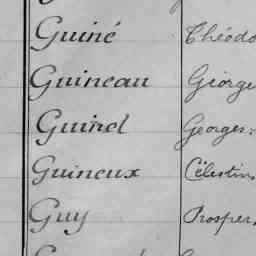 Guiné Théodo
Guineau George
Guinel Georges.
Guineux Célestin
Guy Prosper.